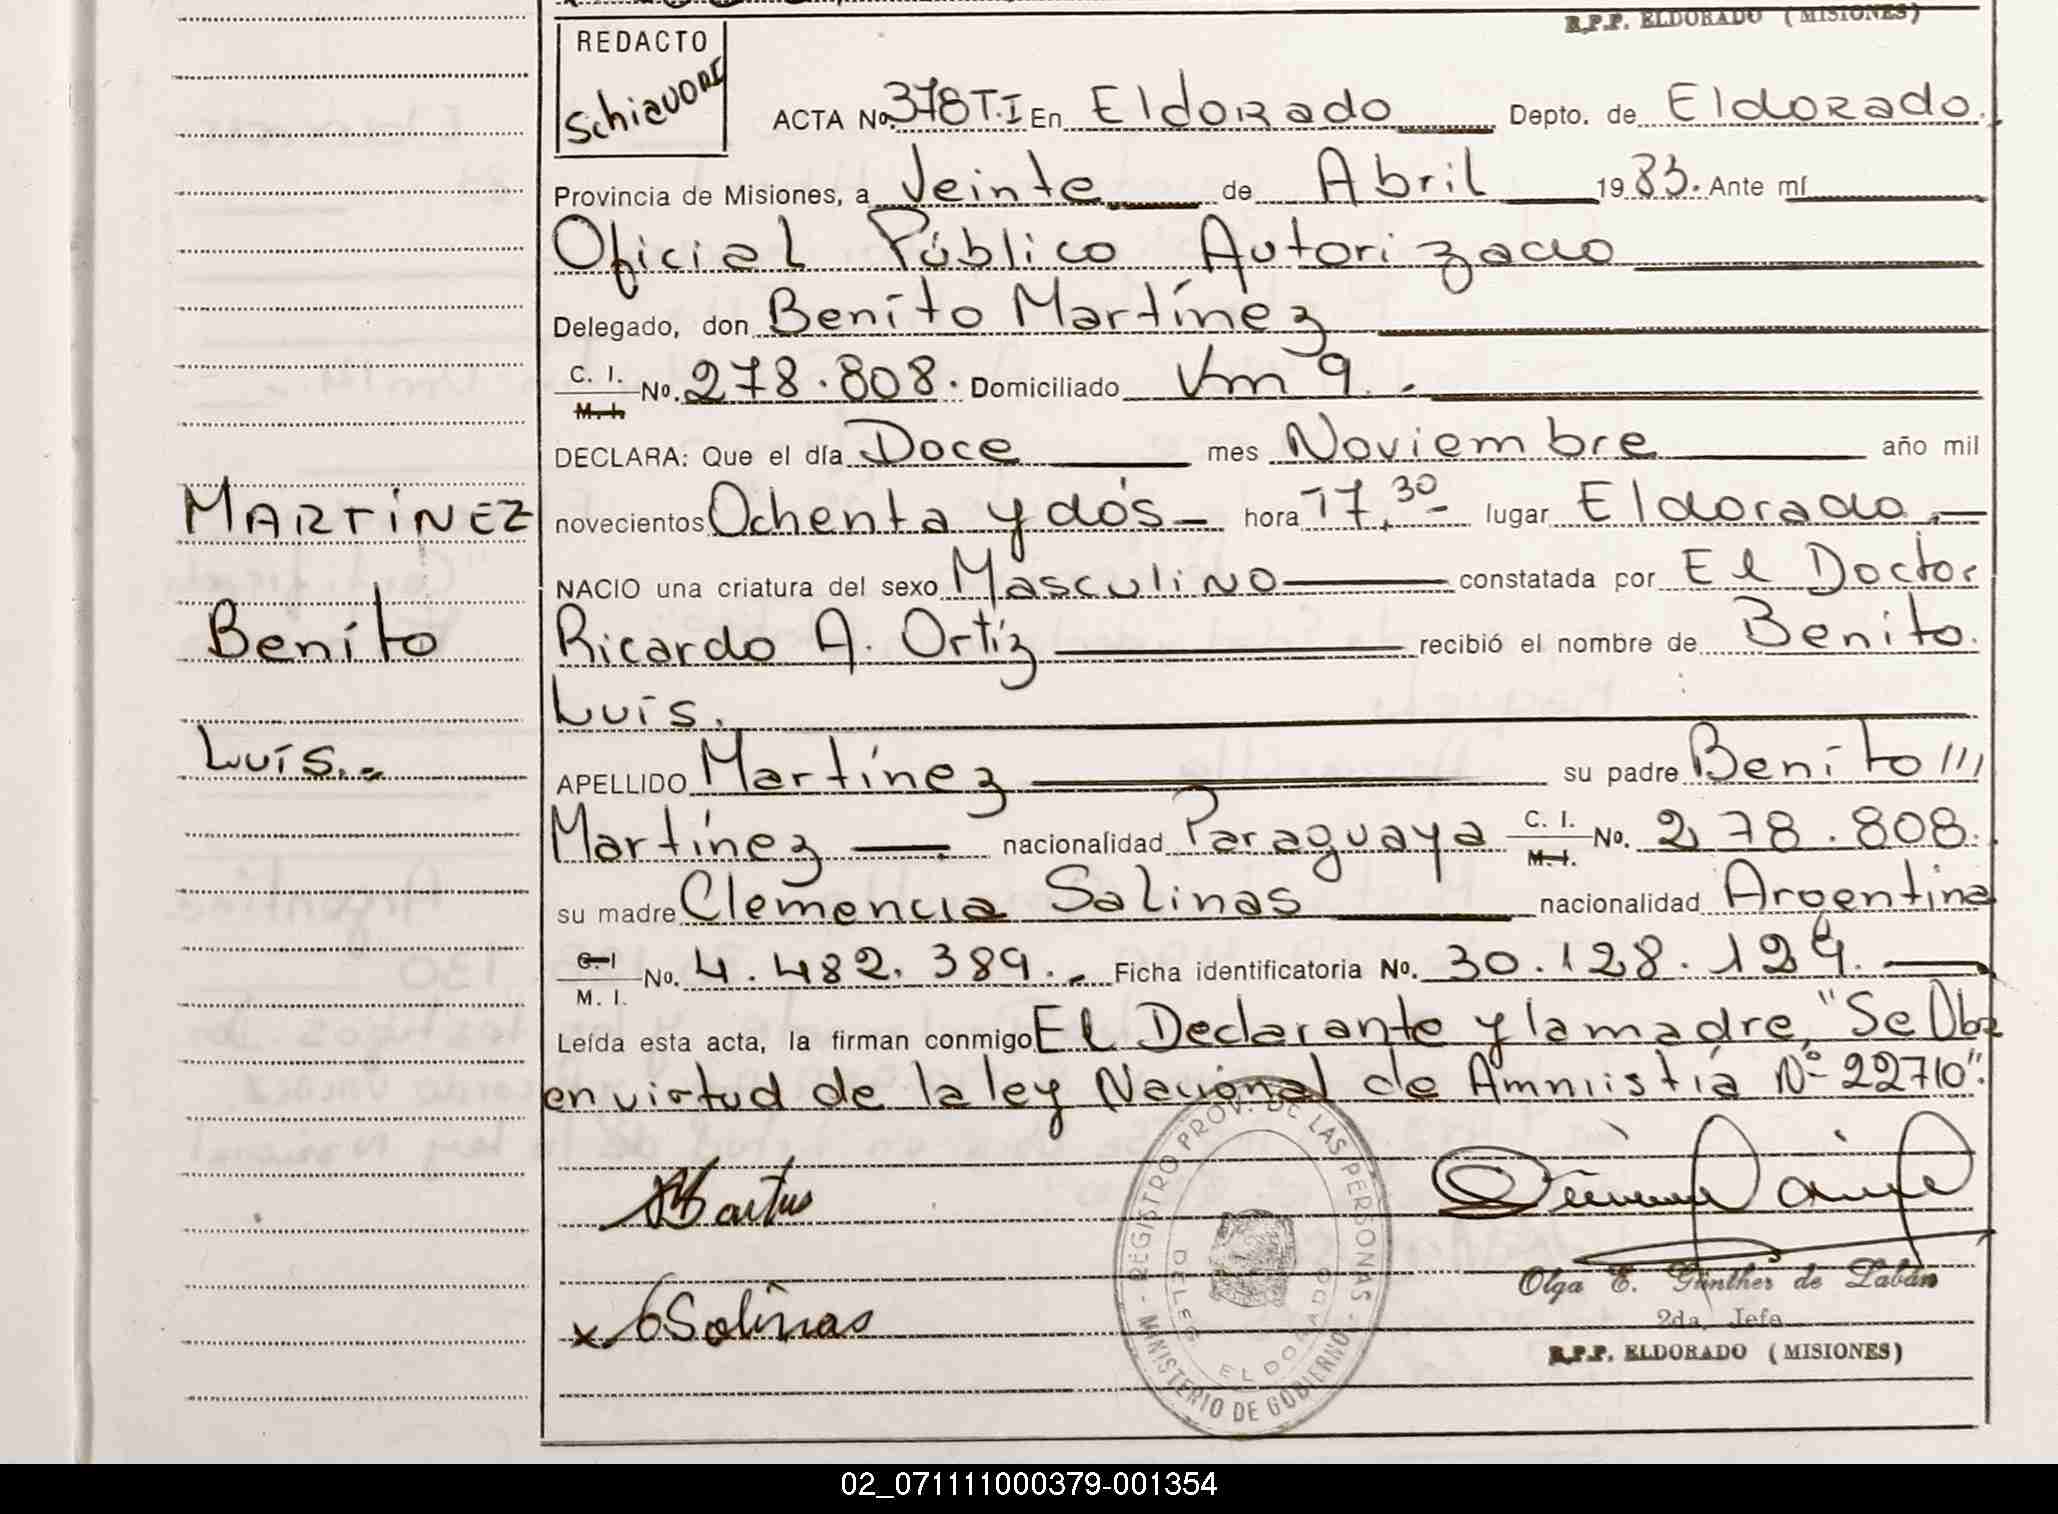 R.P.P. ELDORADO (MISIONES)
REDACTO
Schiavoni
ACTA No. 378 T.I En Eldorado Depto. de Eldorado.
Provincia de Misiones, a Veinte de Abril 1983. Ante mí
Oficial Público Autorizado
Delegado, don Benito Martínez
C. I. M. I. No. 278.808. Domiciliado Km 9.-
DECLARA: Que el día Doce mes Noviembre año mil
novecientos Ochenta y dós- hora 17,30- lugar Eldorado.-
NACIO una criatura del sexo Masculino constatada por El Doctor
Ricardo A. Ortíz recibió el nombre de Benito.
Luís.
MARTÍNEZ
Beníto
Luís..-
APELLIDO Martínez su padre Benito ///
Martínez nacionalidad Paraguaya C. I. M. I. No. 278.808.
su madre Clemencia Salinas nacionalidad Argentina
C. I M. I. No. 4.482.389.- Ficha identificatoria No. 30.128.124.
Leída esta acta, la firman conmigo El Declarante y la madre, "Se Obra
en virtud de la ley Nacional de Amniistía Nº 22710".
REGISTRO PROV. DE LAS PERSONAS - MINISTERIO DE GOBIERNO -
DELEG ELDORADO
x Salinas
Olga E. Günther de Labán
2da. Jefa
R.P.P. ELDORADO (MISIONES)
02_071111000379-001354